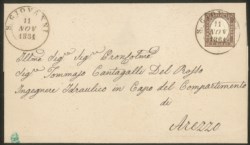 S. GIOVANNI
11
NOV
1861
S. GIOVANNI
11
NOV
1861
Illmo Sig.r Sig.r Pron Colmo
Sig.r Tommaso Cantagalli Del Rosso
Ingegnere Idraulico in Capo del Compartimento
di
Arezzo